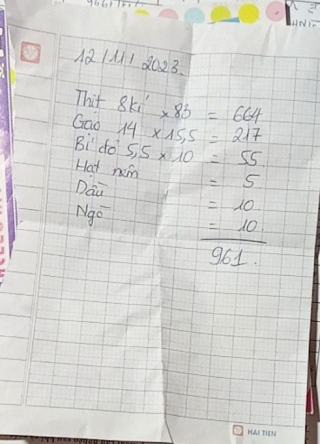 12/11/2023.
Thịt 8kí x 83 = 664
Gạo 14 x 15,5 = 217
Bí đỏ 5,5 x 10 = 55
Hạt nêm = 5
Dầu = 10
Ngò = 10.
961.
HẢI TIẾN